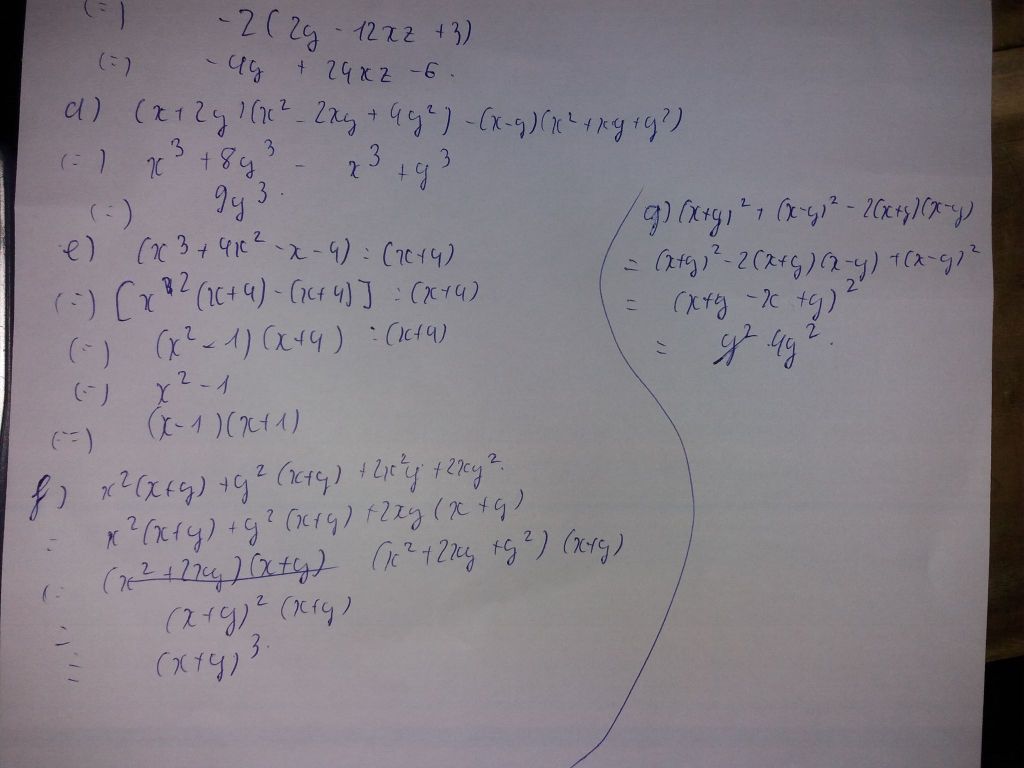 (=) -2(2y - 12xz + 3)
(=) -4y + 24xz - 6.
d) (x + 2y)(x² - 2xy + 4y²) - (x-y)(x² + xy + y²)
(=) x³ + 8y³ - x³ + y³
(=) 9y³.
e) (x³ + 4x² - x - 4) : (x+4)
(=) [x² (x+4) - (x+4)] : (x+4)
(=) (x² - 1)(x+4) : (x+4)
(=) x² - 1
(=) (x-1)(x+1)
f) x²(x+y) + y²(x+y) + 2x²y + 2xy².
= x²(x+y) + y²(x+y) + 2xy(x+y)
(= (x² + 2xy)(x+y) (x² + 2xy + y²)(x+y)
= (x+y)² (x+y)
= (x+y)³.
g) (x+y)² + (x-y)² - 2(x+y)(x-y)
= (x+y)² - 2(x+y)(x-y) + (x-y)²
= (x+y - x + y)²
= y² 4y².